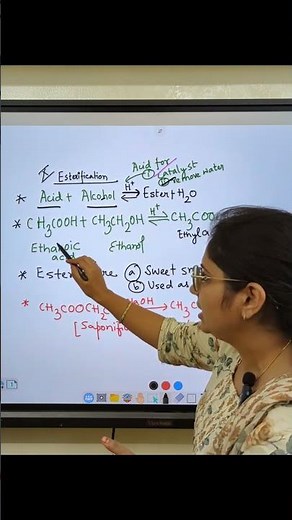 I Esterification
Acid for
① Catalyst
② remove water
* Acid + Alcohol ⇌ H⁺ Ester + H₂O
* CH₃COOH + CH₃CH₂OH ⇌ H⁺ CH₃COO
Ethanoic acid Ethanol Ethyl
* Ester ⓐ Sweet
ⓑ Used as
* CH₃COOCH₂ OH → CH₃C
[Saponifi